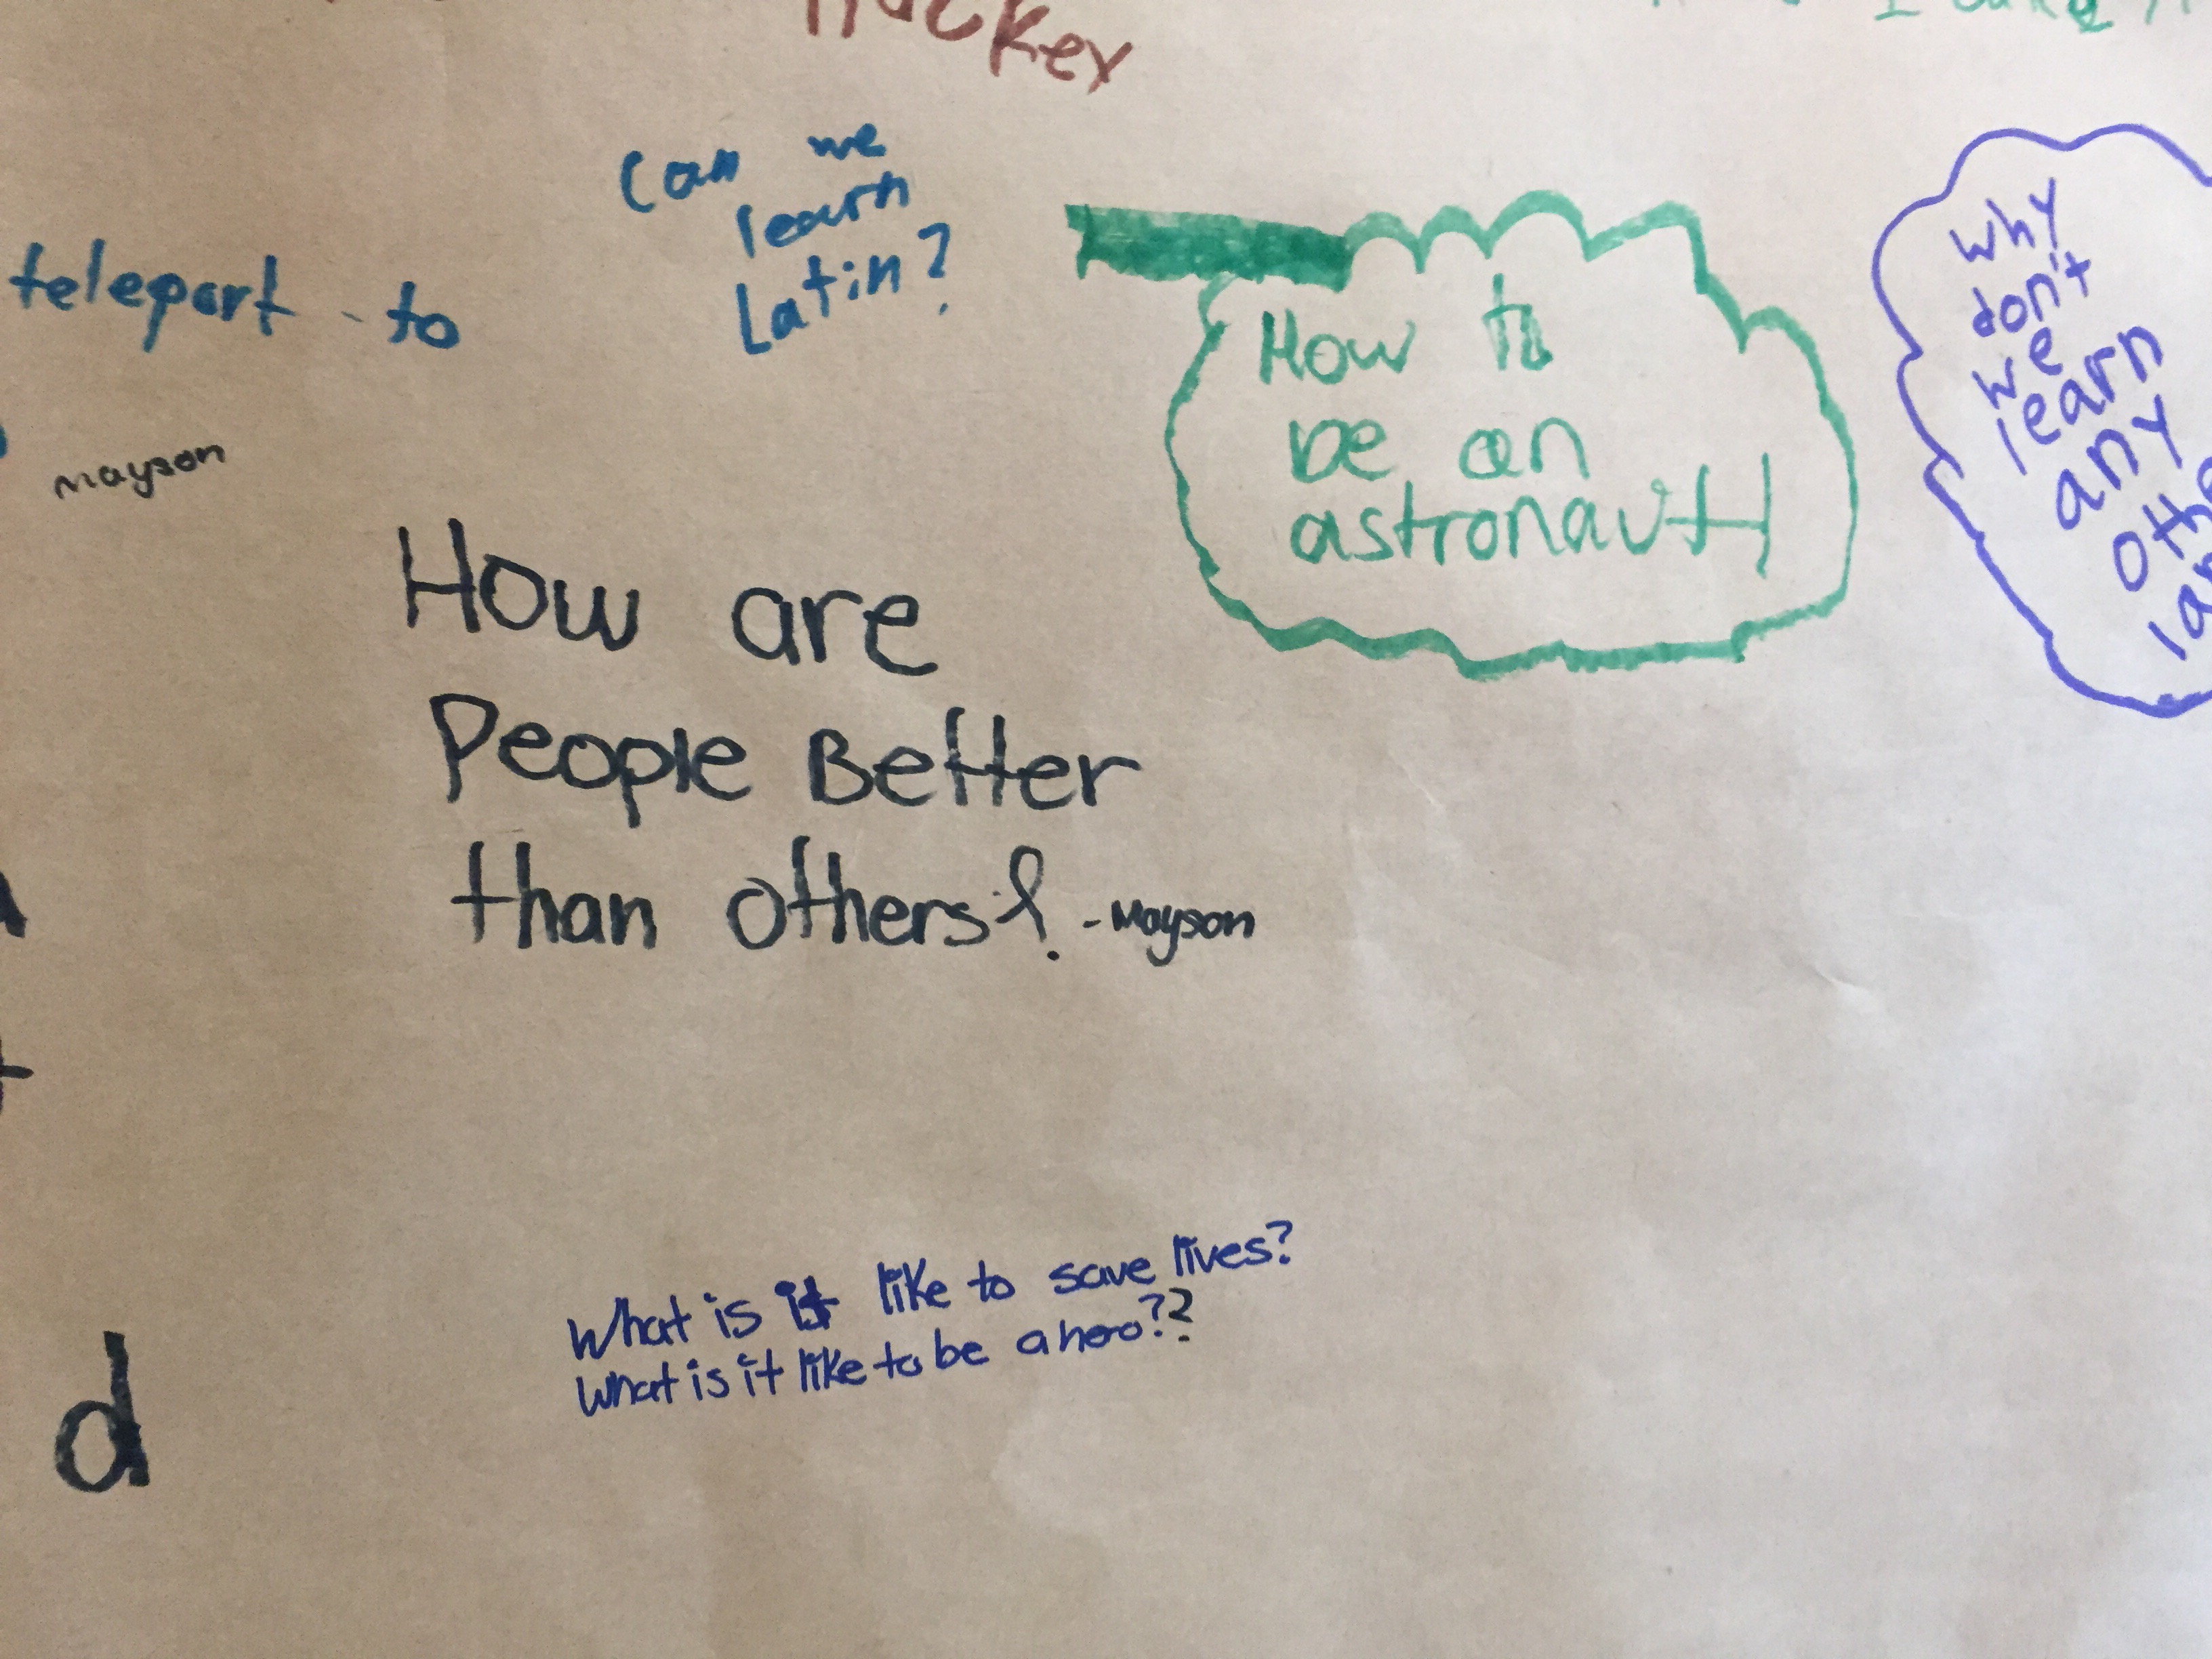 Can we
learn
Latin?
teleport to
mayson
How to
be an
astronaut
why
don't
we
learn
any
How are
People Better
than others?
-Mayson
What is it like to save lives?
What is it like to be a hero??
d